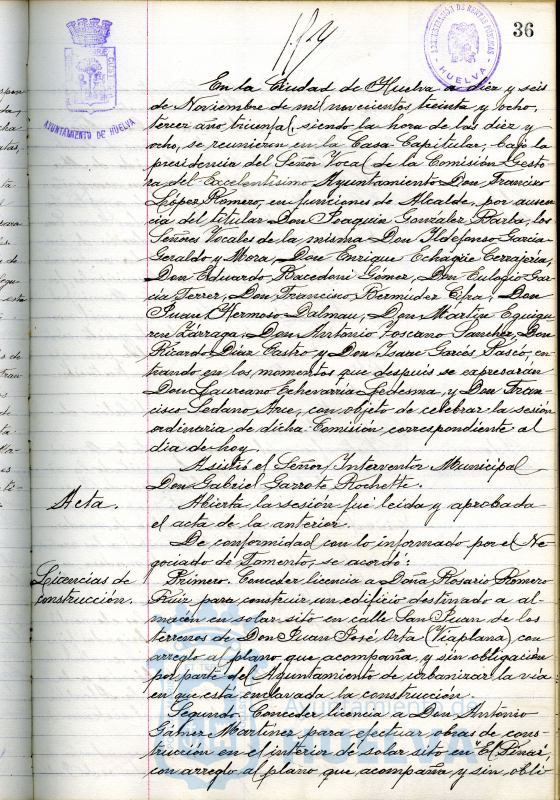 36
AYUNTAMIENTO DE HUELVA
HUELVA
En la Ciudad de Huelva a diez y seis
de Noviembre de mil novecientos treinta y ocho,
tercer año triunfal, siendo la hora de las diez y
ocho, se reunieron en la Casa Capitular, bajo la
presidencia del Señor Vocal de la Comisión Gesto-
ra del Excelentísimo Ayuntamiento Don Francisco
López Romero, en funciones de Alcalde, por ausen-
cia del titular Don Joaquín González Barba, los
Señores Vocales de la misma Don Ildefonso García-
Geraldo y Mora, Don Enrique Echagüe Cerrajería,
Don Eduardo Bacedoni Gómez, Don Eulogio Gar-
cía Ferrer, Don Francisco Bermúdez Cfra, Don
Juan Hermoso Dalmau, Don Martín Equigu-
ren Zárraga, Don Antonio Toscano Sánchez, Don
Ricardo Díaz Castro y Don Isaac Garcés Pascó, en-
trando en los momentos que después se expresarán
Don Laureano Echevarría Ledesma, y Don Fran-
cisco Sedano Arce, con objeto de celebrar la sesión
ordinaria de dicha Comisión correspondiente al
día de hoy.
Asistió el Señor Interventor Municipal
Don Gabriel Garrote Rochett.
Acta.
Abierta la sesión fué leída y aprobada
el acta de la anterior.
De conformidad con lo informado por el Ne-
gociado de Fomento, se acordó:
Licencias de
construcción.
Primero. Conceder licencia a Doña Rosario Romero
Ruiz para construir un edificio destinado a al-
macén en solar sito en calle San Juan de los
terrenos de Don Juan José Orta (Viaplana) con
arreglo al plano que acompaña, y sin obligación
por parte del Ayuntamiento de urbanizar la vía
en que está enclavada la construcción.
Segundo. Conceder licencia a Don Antonio
Gámez Martínez para efectuar obras de cons-
trucción en el interior de solar sito en "El Pinar",
con arreglo al plano que acompaña y sin obli-
Ayuntamiento de
HUELVA